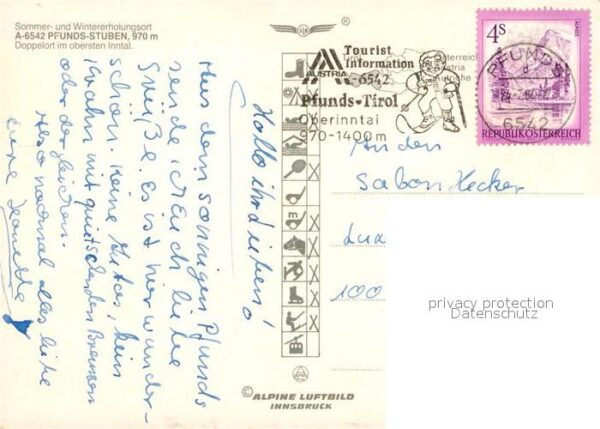 Sommer- und Wintererholungsort
A-6542 PFUNDS-STUBEN, 970 m
Doppelort im obersten Inntal.
Hallo ihr Lieben!
Aus dem sonnigen Pfunds
sende ich Euch liebe
Grüße. Es ist hier wunder-
schön. Keine Autos, kein
mit quietschenden Bremsen
oder dergleichen.
Also nochmal alles liebe
eure
AUSTRIA
Tourist
Information
A-6542
Pfunds-Tirol
Oberinntal
970-1400m
PFUNDS
6542
4S
ALMSEE
REPUBLIK ÖSTERREICH
An den
Salon Hecker
100
privacy protection
Datenschutz
© ALPINE LUFTBILD
INNSBRUCK